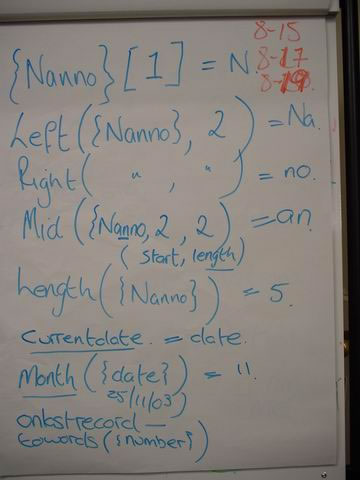 8-15
{Nanno}[1] = N.
8-17
8-19
Left({Nanno}, 2) = Na.
Right( " , " ) = no.
Mid ({Nanno, 2, 2) = an.
(start, length)
Length({Nanno}) = 5.
Currentdate. = date.
Month({date}) = 11.
25/11/03
onlastrecord —
towords({number})